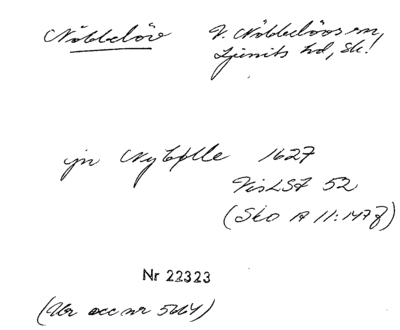 Nöbbelöv V. Nöbbelövs sn,
Ljunits hd, Sk!
jn Nybølle 1627
VisLSA 52
(SkO A 11:147 f)
Nr 22323
(Ur acc nr 5464)